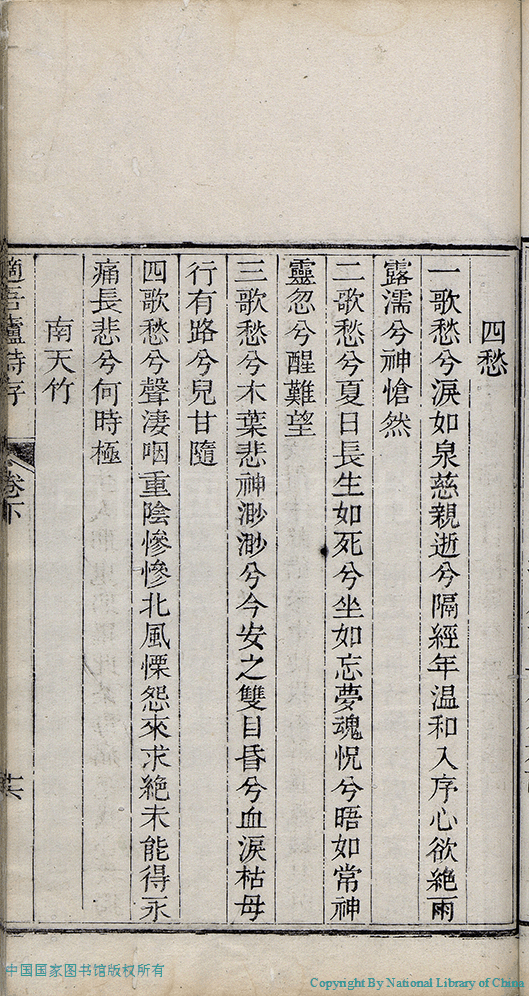 四愁
一歌愁兮淚如泉慈親逝兮隔經年温和入序心欲絶雨
露濡兮神愴然
二歌愁兮夏日長生如死兮坐如忘夢魂怳兮晤如常神
靈忽兮醒難望
三歌愁兮木葉悲神渺渺兮今安之雙目昏兮血淚枯母
行有路兮兒甘隨
四歌愁兮聲淒咽重陰慘慘北風慄怨來求絶未能得永
痛長悲兮何時極
南天竹
吾廬詩存
卷下
中国国家图书馆版权所有
Copyright By National Library of China